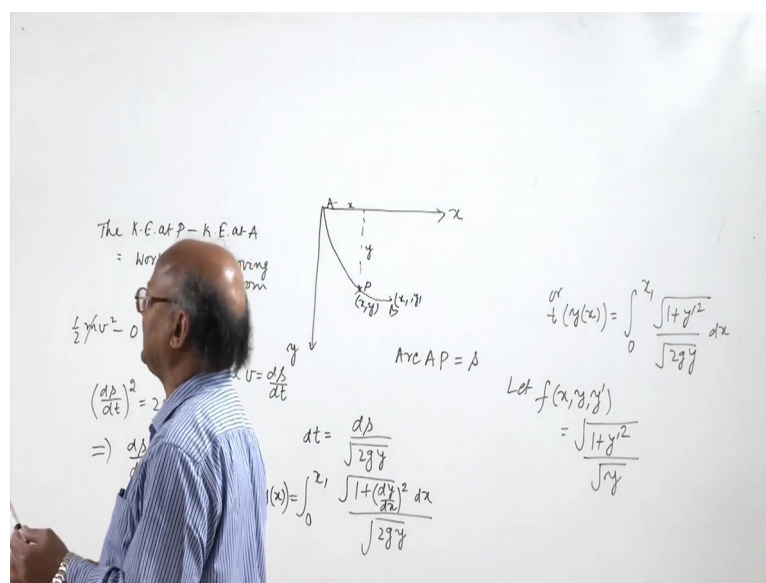 The K.E. at P - K.E. at A
=
½mv² - 0
(ds/dt)² = 2
v = ds/dt
=>
A x
x
y
P
(x,y) B (x₁, y₁
y
Arc AP = s
dt = ds/√2gy
(x) = ∫₀^x₁ √1+(dy/dx)² dx/√2gy
or
t(y(x)) = ∫₀^x₁ √1+y'²/√2gy dx
Let f(x,y,y')
= √1+y'²/√y